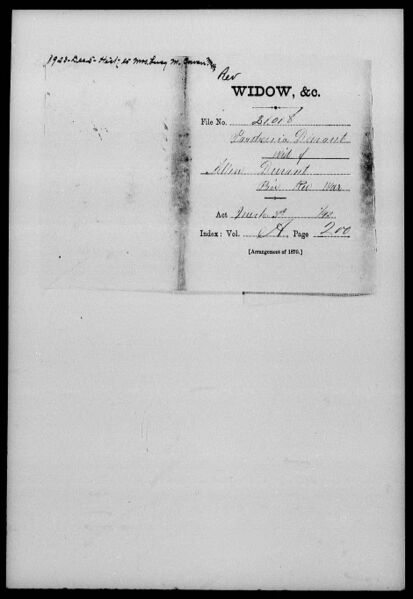 1923-Dec 5- Hist- to Mrs. Lucy M.
Rev
WIDOW, &c.
File No. 21018
Durant
Wid of
Allen Durant
Rev War
Act March 3d
Index: Vol. A Page 200
[Arrangement of 1870.]